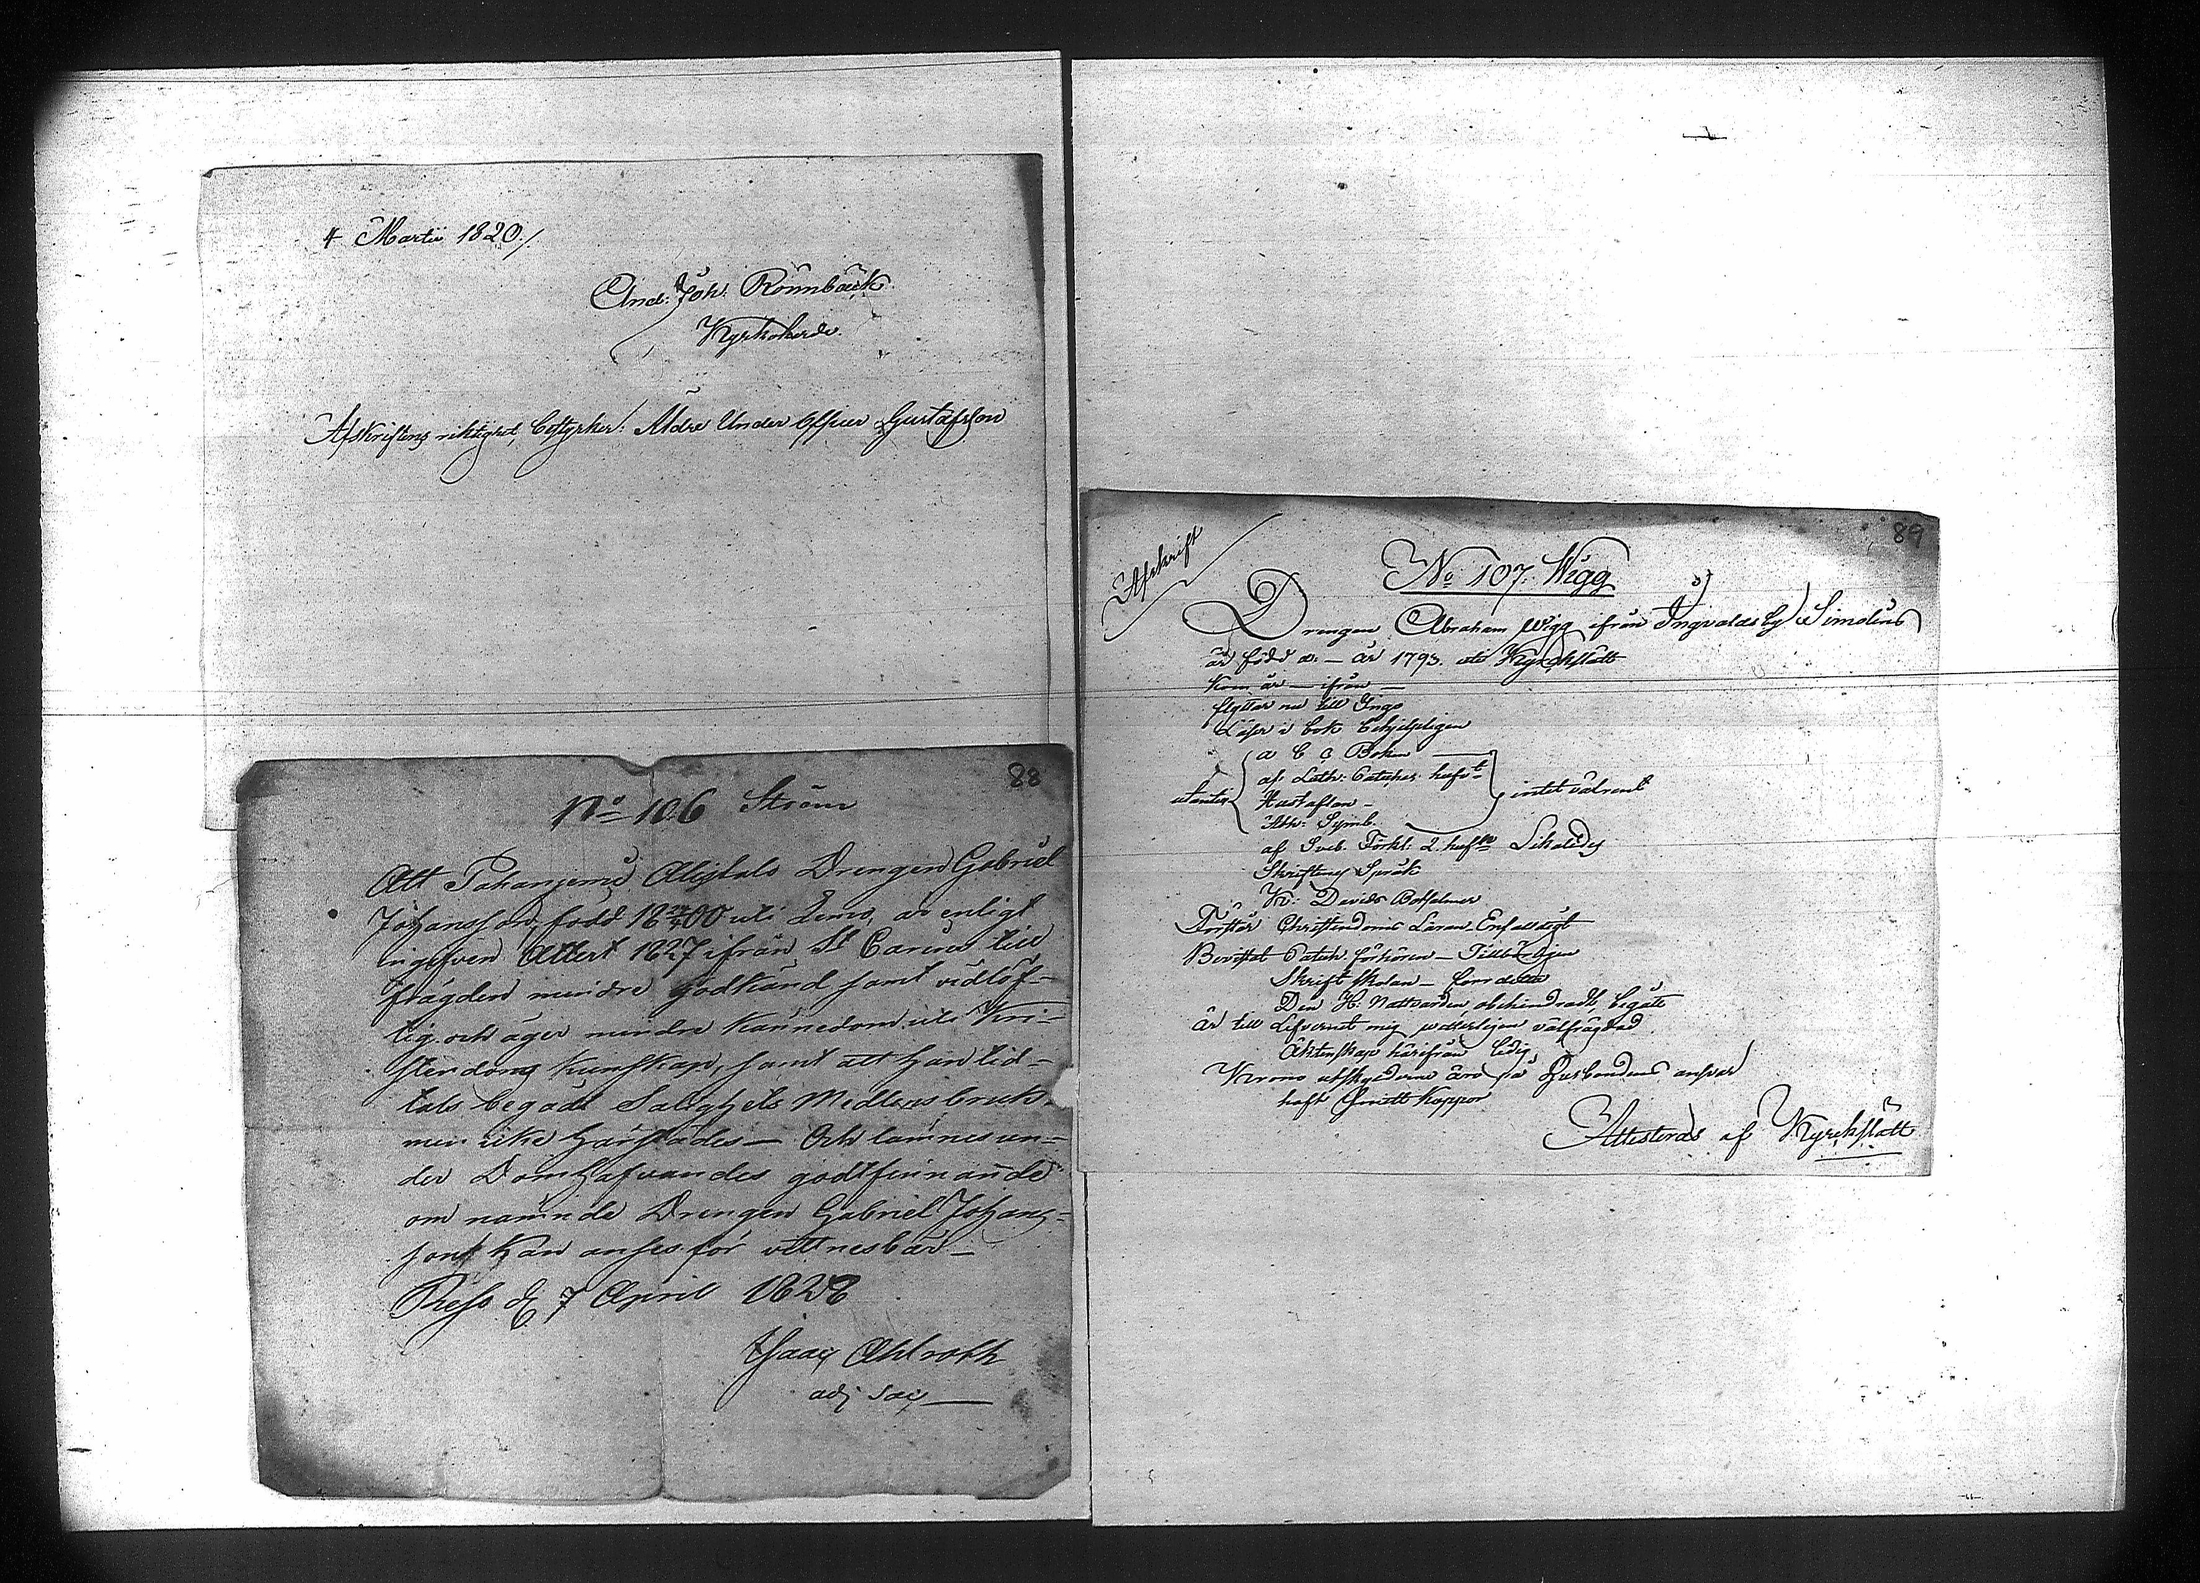 4 Martii 1820./.
And: Joh. Rönnbäck
Kyrkoherde.
Afskriftens riktighet, bestyrker: Äldre Under Officer Gustafsson
88
No 106 Ström
Att Drengen Gabriel
Johansson, född 18 00 uti Lemo, är enligt
ingifven Attest 1827 ifrån St Carins till
frägden mindre godkänd samt vidlöf-
tig och äger mindre kännedom uti Kri-
stendoms kunskap, samt att han tid-
tals begådt Salighets Medlens bruk
men icke härstädes — Och lämnes un-
der Domhafvandes godtfinnande
om nämnde Drengen Gabriel Johans-
sons kan anses för vittnesbär —
Peso d. 7 April 1828
Isaac Ahlroth
adj. sac.
89
Afskrift
No 107. Wigg
Drengen Abraham Wigg ifrån Ingvaldsby Simolins
är född a: — år 1793. uti Kyrckslätt
Kom år — ifrån —
flyttar nu till Ingo
Läser i bok behjelpligen
utantill
a b c Boken —
af Luth: Cateches hufst
Hustaflan —
Ath: Symb.
intet välment
af Sveb. Förkl. 2 hufst
Skriftenes Språk
K: Davids Botpsalmer
Förstår Christendoms Läran Enfaldigt
Bevistat Catech. förhören — Tillbörligen
Skriftskolan —
Den H: Nattvarden obehindradt, begått
är till Lefvernet mig välfrägdad
Äktenskap härifrån ledig
Krono utskylderne äro på Husbondens ansvar
haft Smittkoppor
Attesteras af Kyrckslätt